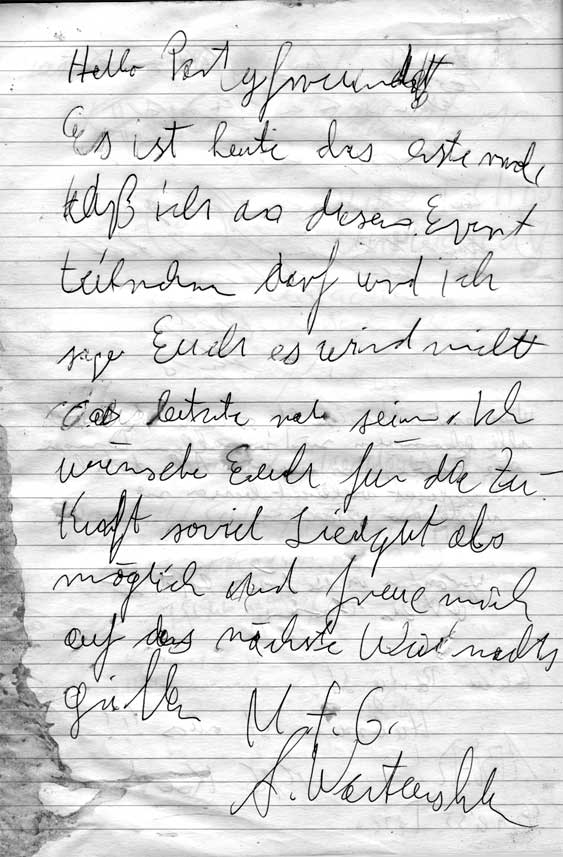 Hello Partyfreunde
Es ist heute das erste mal,
daß ich an diesem Event
teilnehmen darf und ich
sage Euch es wird nicht
das letzte mal sein. Ich
wünsche Euch für die Zu-
kunft soviel als
möglich und freue mich
auf das nächste Weihnachts
grillen M.f.G.